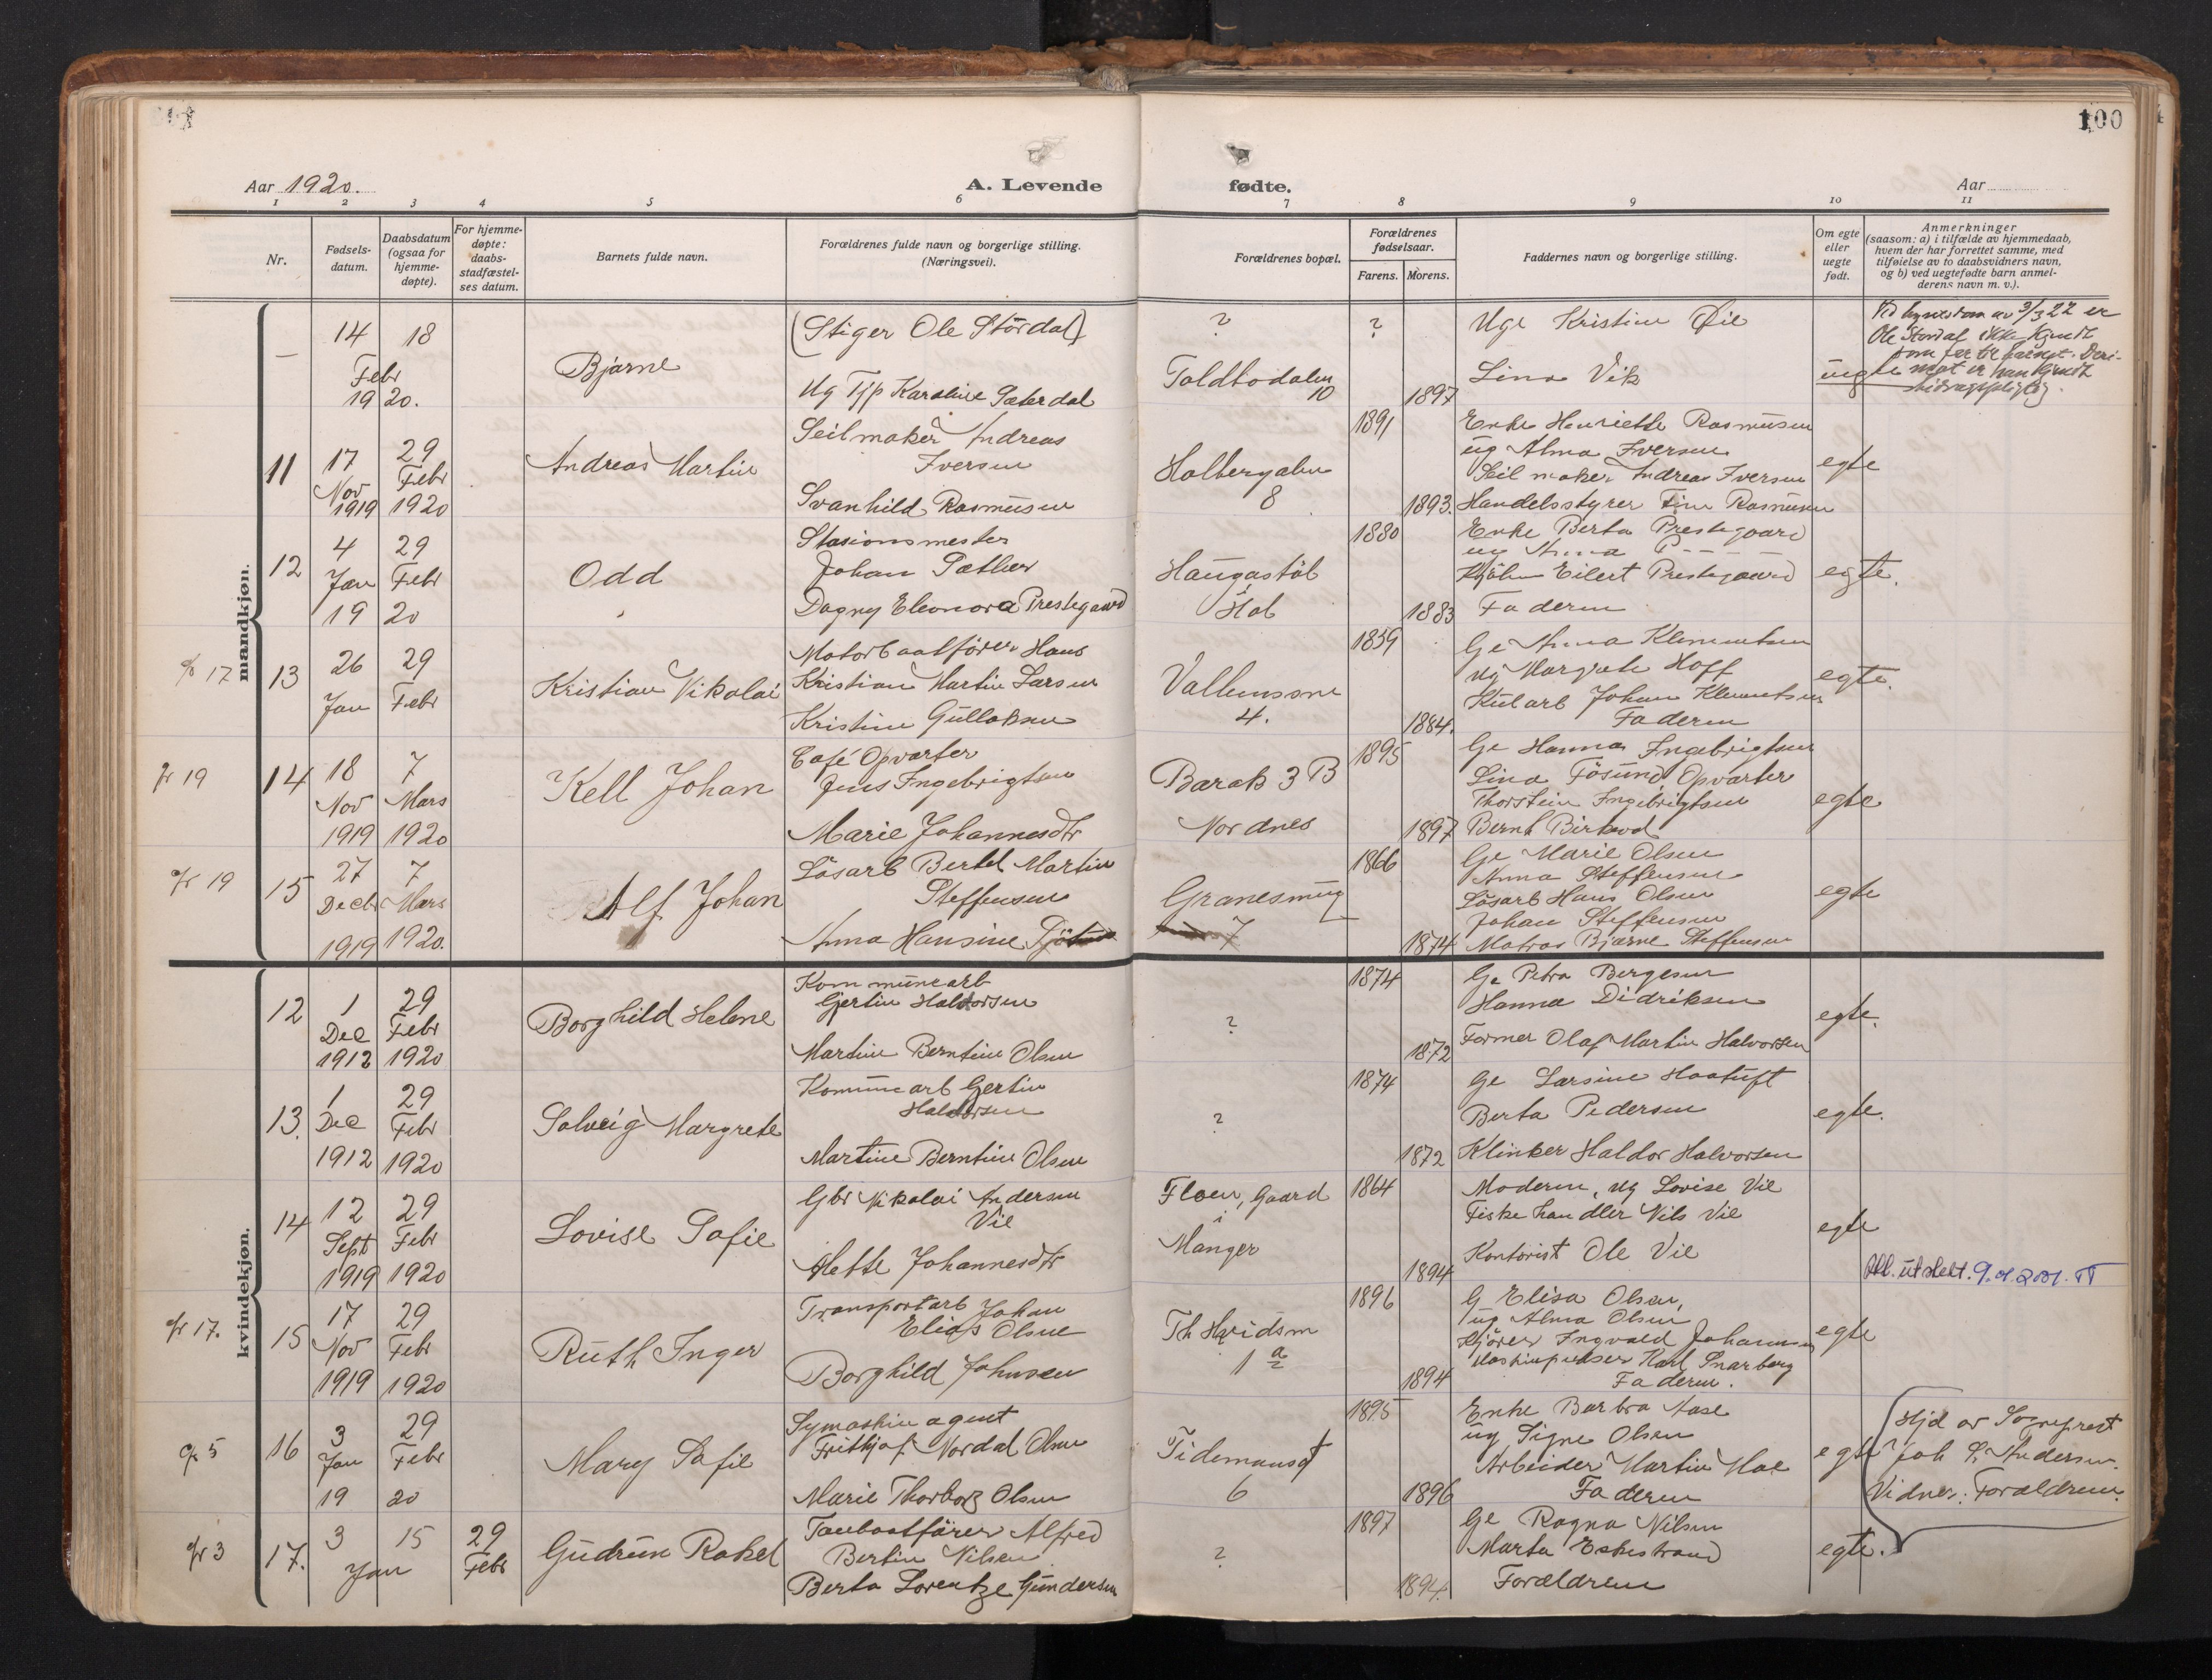 100
Aar 1920.
A. Levende
fødte.
Aar
1 2 3 4 5 6 7 8 9 10 11
Nr.
Fødsels-
datum.
Daabsdatum
(ogsaa for
hjemme-
døpte).
For hjemme-
døpte:
daabs-
stadfæstel-
ses datum.
Barnets fulde navn.
Forældrenes fulde navn og borgerlige stilling.
(Næringsvei).
Forældrenes bopæl.
Forældrenes
fødselsaar.
Farens. Morens.
Faddernes navn og borgerlige stilling.
Om egte
eller
uegte
født.
Anmerkninger
(saasom: a) i tilfælde av hjemmedaab,
hvem der har forrettet samme, med
tilføielse av to daabsvidners navn,
og b) ved uegtefødte barn anmel-
derens navn m. v.).
mandkjøn.
— 14 18
Febr
1920.
Bjarne
(Stiger Ole Stördal)
Ug Tjp Karoline Sæterdal
?
Toldbodalm
10
?
1897
Uge Kristine Öie
Lina Vik
uegte
av 3/3 22 er
Ole Stordal ikke kjendt
som far til barnet. Deri-
mot er han kjendt
bidragspligtig.
11
17
Nov
1919
29
Febr
1920
Andreas Martin
Seilmaker Andreas
Iversen
Svanhild Rasmussen
Holbergalm
8
1891
1893.
Enke Henriette Rasmussen
ug Alma Iversen
Seilmaker Andreas Iversen
Handelsstyrer Finn Rasmussen
egte
12
4
Jan
19
29
Febr
20
Odd
Stasionsmester
Johan Sæther
Dagny Eleonora Prestegaard
Haugastöl
Hol
1880
1883
Enke Berta Prestegaard
ug Anna P---
Eilert Prestegaard
Faderen
egte.
17
13
26
Jan
29
Febr
Kristian Nikolai
Motorbaatförer Hans
Kristian Martin Larsen
Kristine Gullaksen
4.
1859
1884.
Ge Anna Klementsen
ug Margrete Hoff
Kularb Johan Klementsen
Faderen
egte.
19
14
18
Nov
1919
7
Mars
1920
Kell Johan
Café Opvarter
Jens Ingebrigtsen
Marie Johannesdtr
Barak 3 B
Nordnes
1895
1897
Ge Hanna Ingebrigtsen
Lina Fösund, Opvarter
Thorstein Ingebrigtsen
Bernh
egte
19
15
27
Decbr
1919
7
Mars
1920.
Alf Johan
Lösarb Bertel Martin
Steffensen
Anna Hansine
Granesmug
7
1866
1874
Ge Marie Olsen
Anna Steffensen
Lösarb Hans Olsen
Johan Steffensen
Matros Bjarne Steffensen
egte
kvindekjøn.
12
1
Dec
1912
29
Febr
1920
Borghild Helene
Kommunearb
Gjertin Haldorsen
Martine Berntine Olsen
?
1874
1872
Ge Petra Bergesen
Hanna Didriksen
Former Olaf Martin Halvorsen
egte.
13.
1
Dec
1912
29
Febr
1920
Solveig Margrete
Komunearb Gertin
Haldorsen
Martine Berntine Olsen
?
1874
1872
Ge Larsine Haatuft
Berta Pedersen
Klinker Haldor Halvorsen
egte.
14
12
Sept
1919
29
Febr
1920
Lovise Sofie
Gbr Nikolai Andersen
Vie
Mette Johannesdtr
Floen, Gaard
i
Manger
1864
1894
Moderen, ug Lovise Vie
Fiskehandler Nils Vie
Kontorist Ole Vie
egte
utstedt. 9.01.2001. TT
17.
15
17
Nov
1919
29
Febr
1920
Ruth Inger
Transportarb Johan
Elias Olsen
Borghild Johnsen
1 a
1896
1894
G Elisa Olsen,
ug Alma Olsen
Kjörer Ingvald Johannsen
Maskinpudser Karl Snarberg
Faderen.
egte
5
16
3
Jan
19
29
Febr
20
Mary Sofie
Symaskinagent
Frithjof Nordal Olsen
Marie Thorborg Olsen
Tidemansgt
6
1895
1896
Enke Barbra Aase
ug Signe Olsen
Arbeider Martin Moe
Faderen
egte
Hjd av Sogneprest
Joh S. Andersen.
Vidner: Forældrene.
3
17.
3 15
Jan
29
Febr
Gudrun Rakel
Taubaatförer Alfred
Bertin Nilsen
Berta Lorentze Gundersen
?
1897
1894.
Ge Ragna Nilsen
Marta Eskestrand
Forældrene
egte.